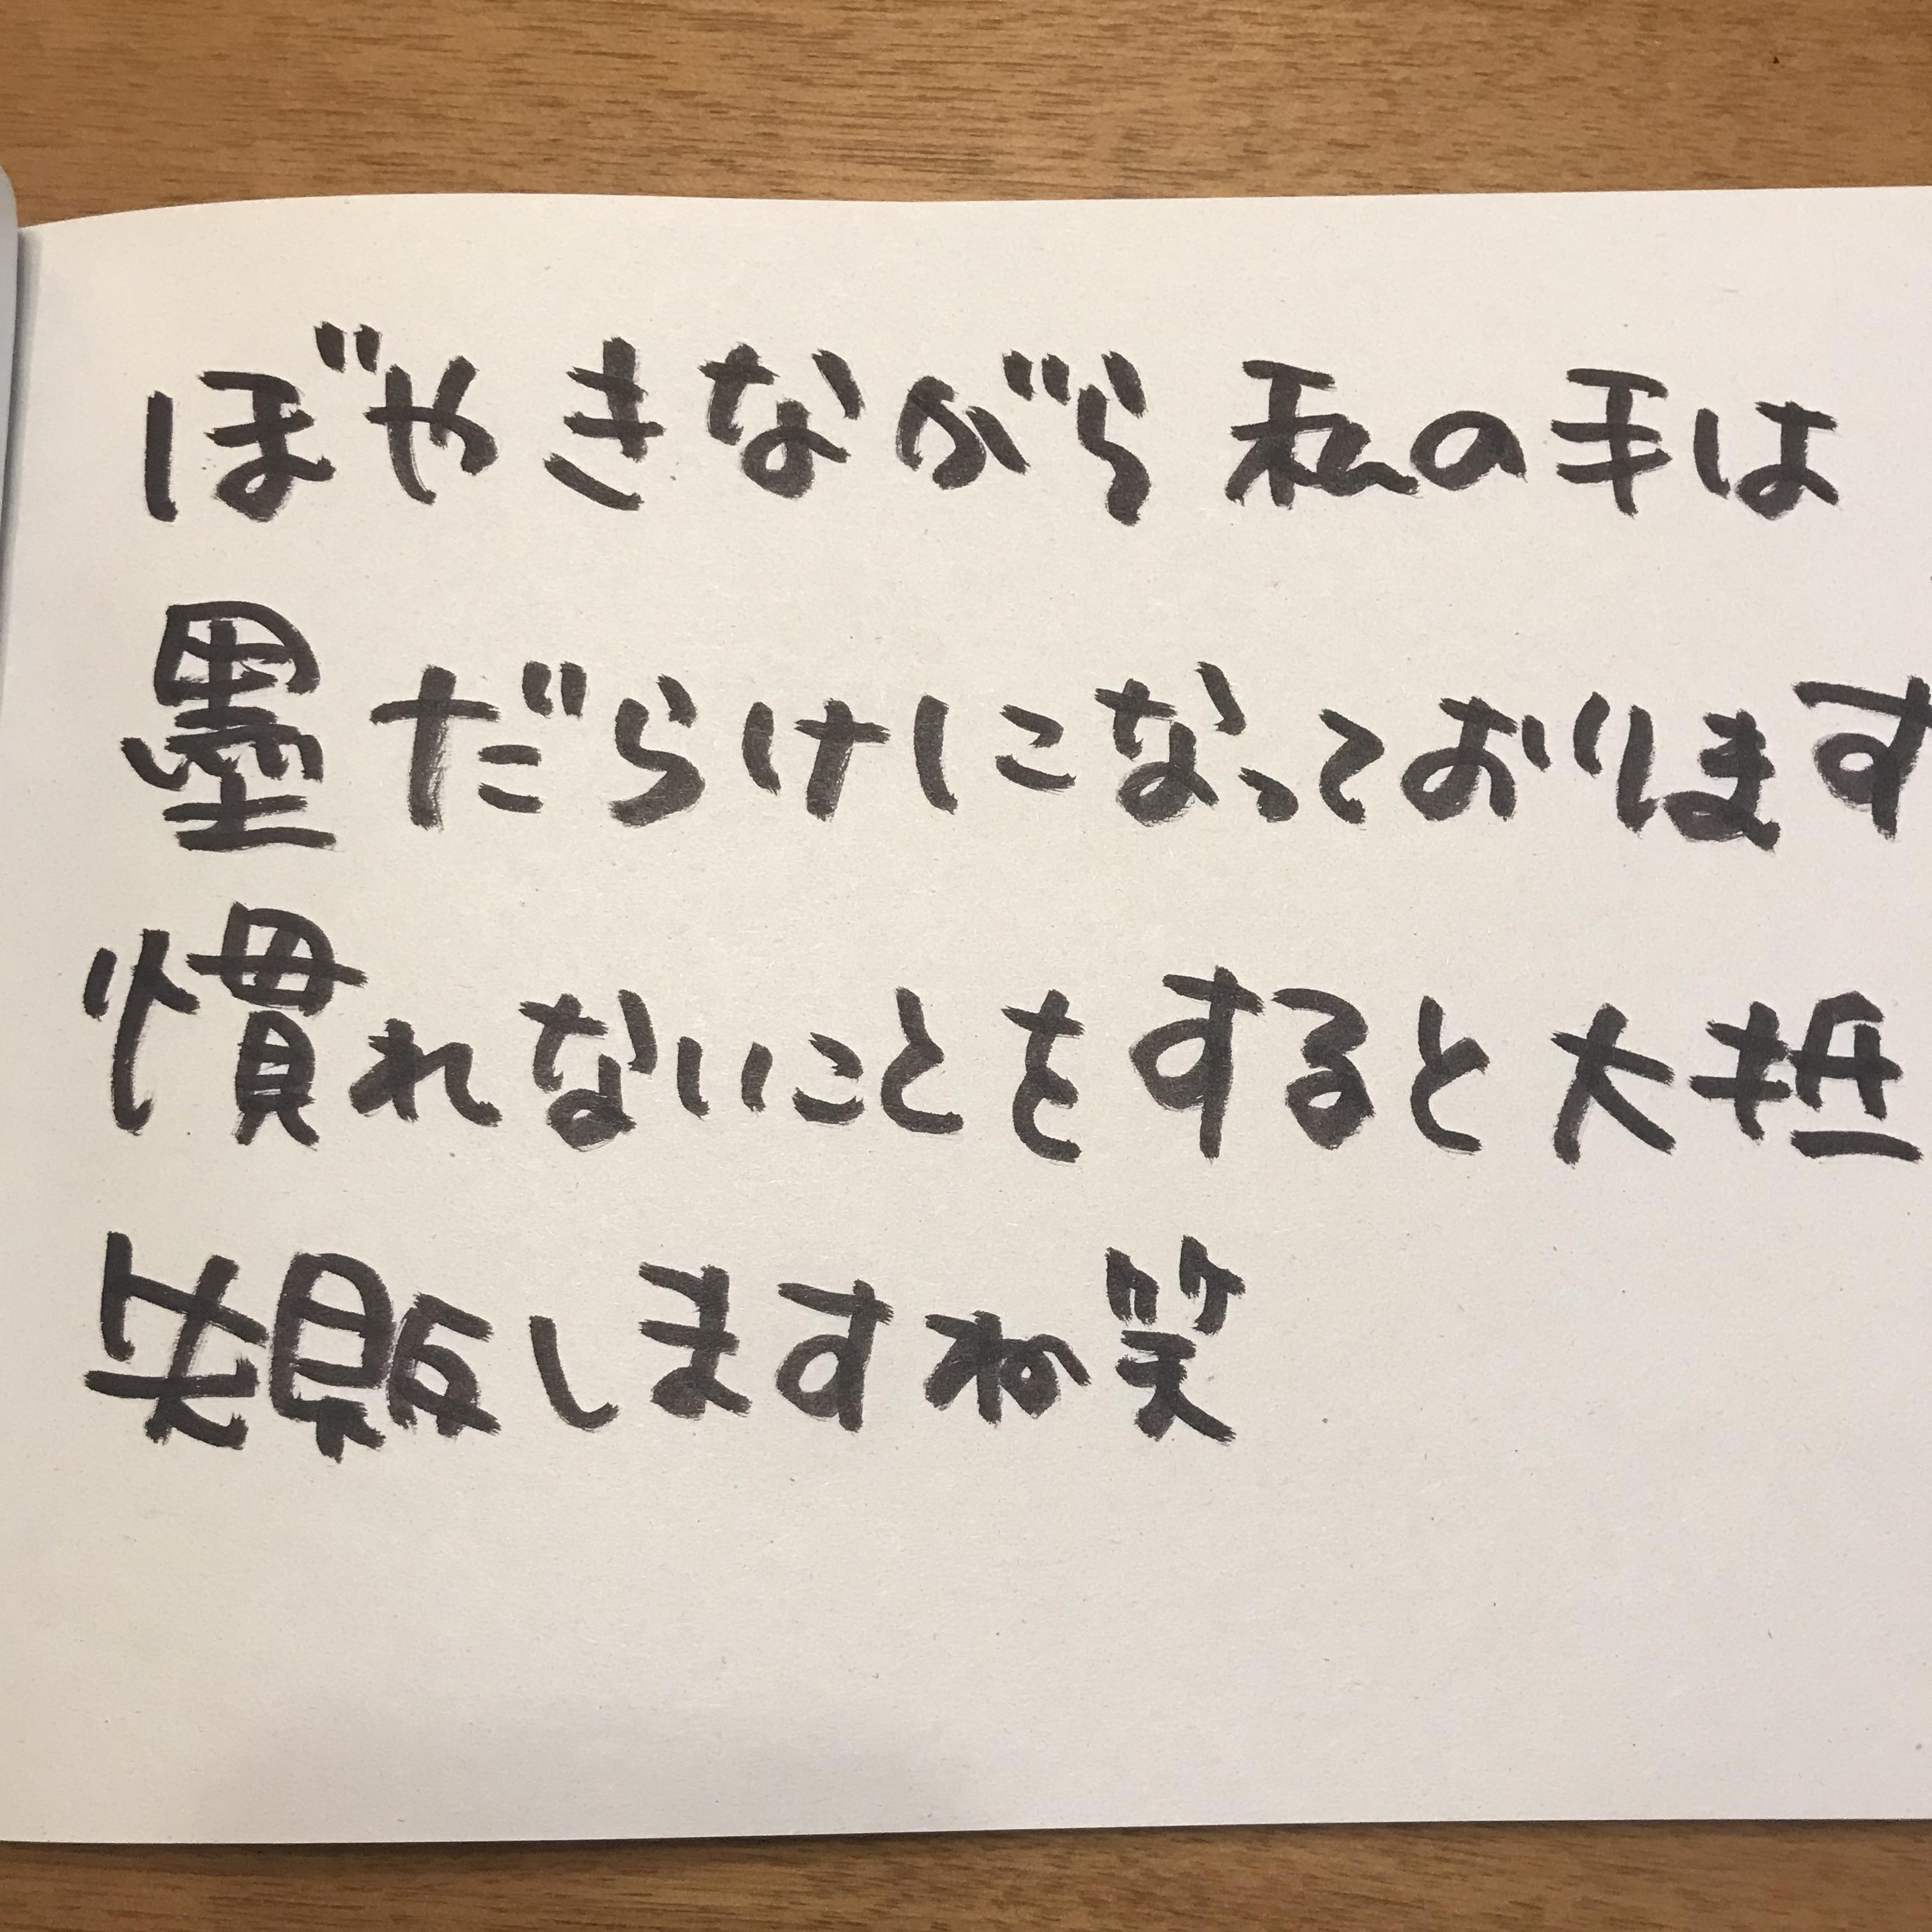 ぼやきながら 私の手は
墨だらけになっております
慣れないことをすると大抵
失敗しますね笑